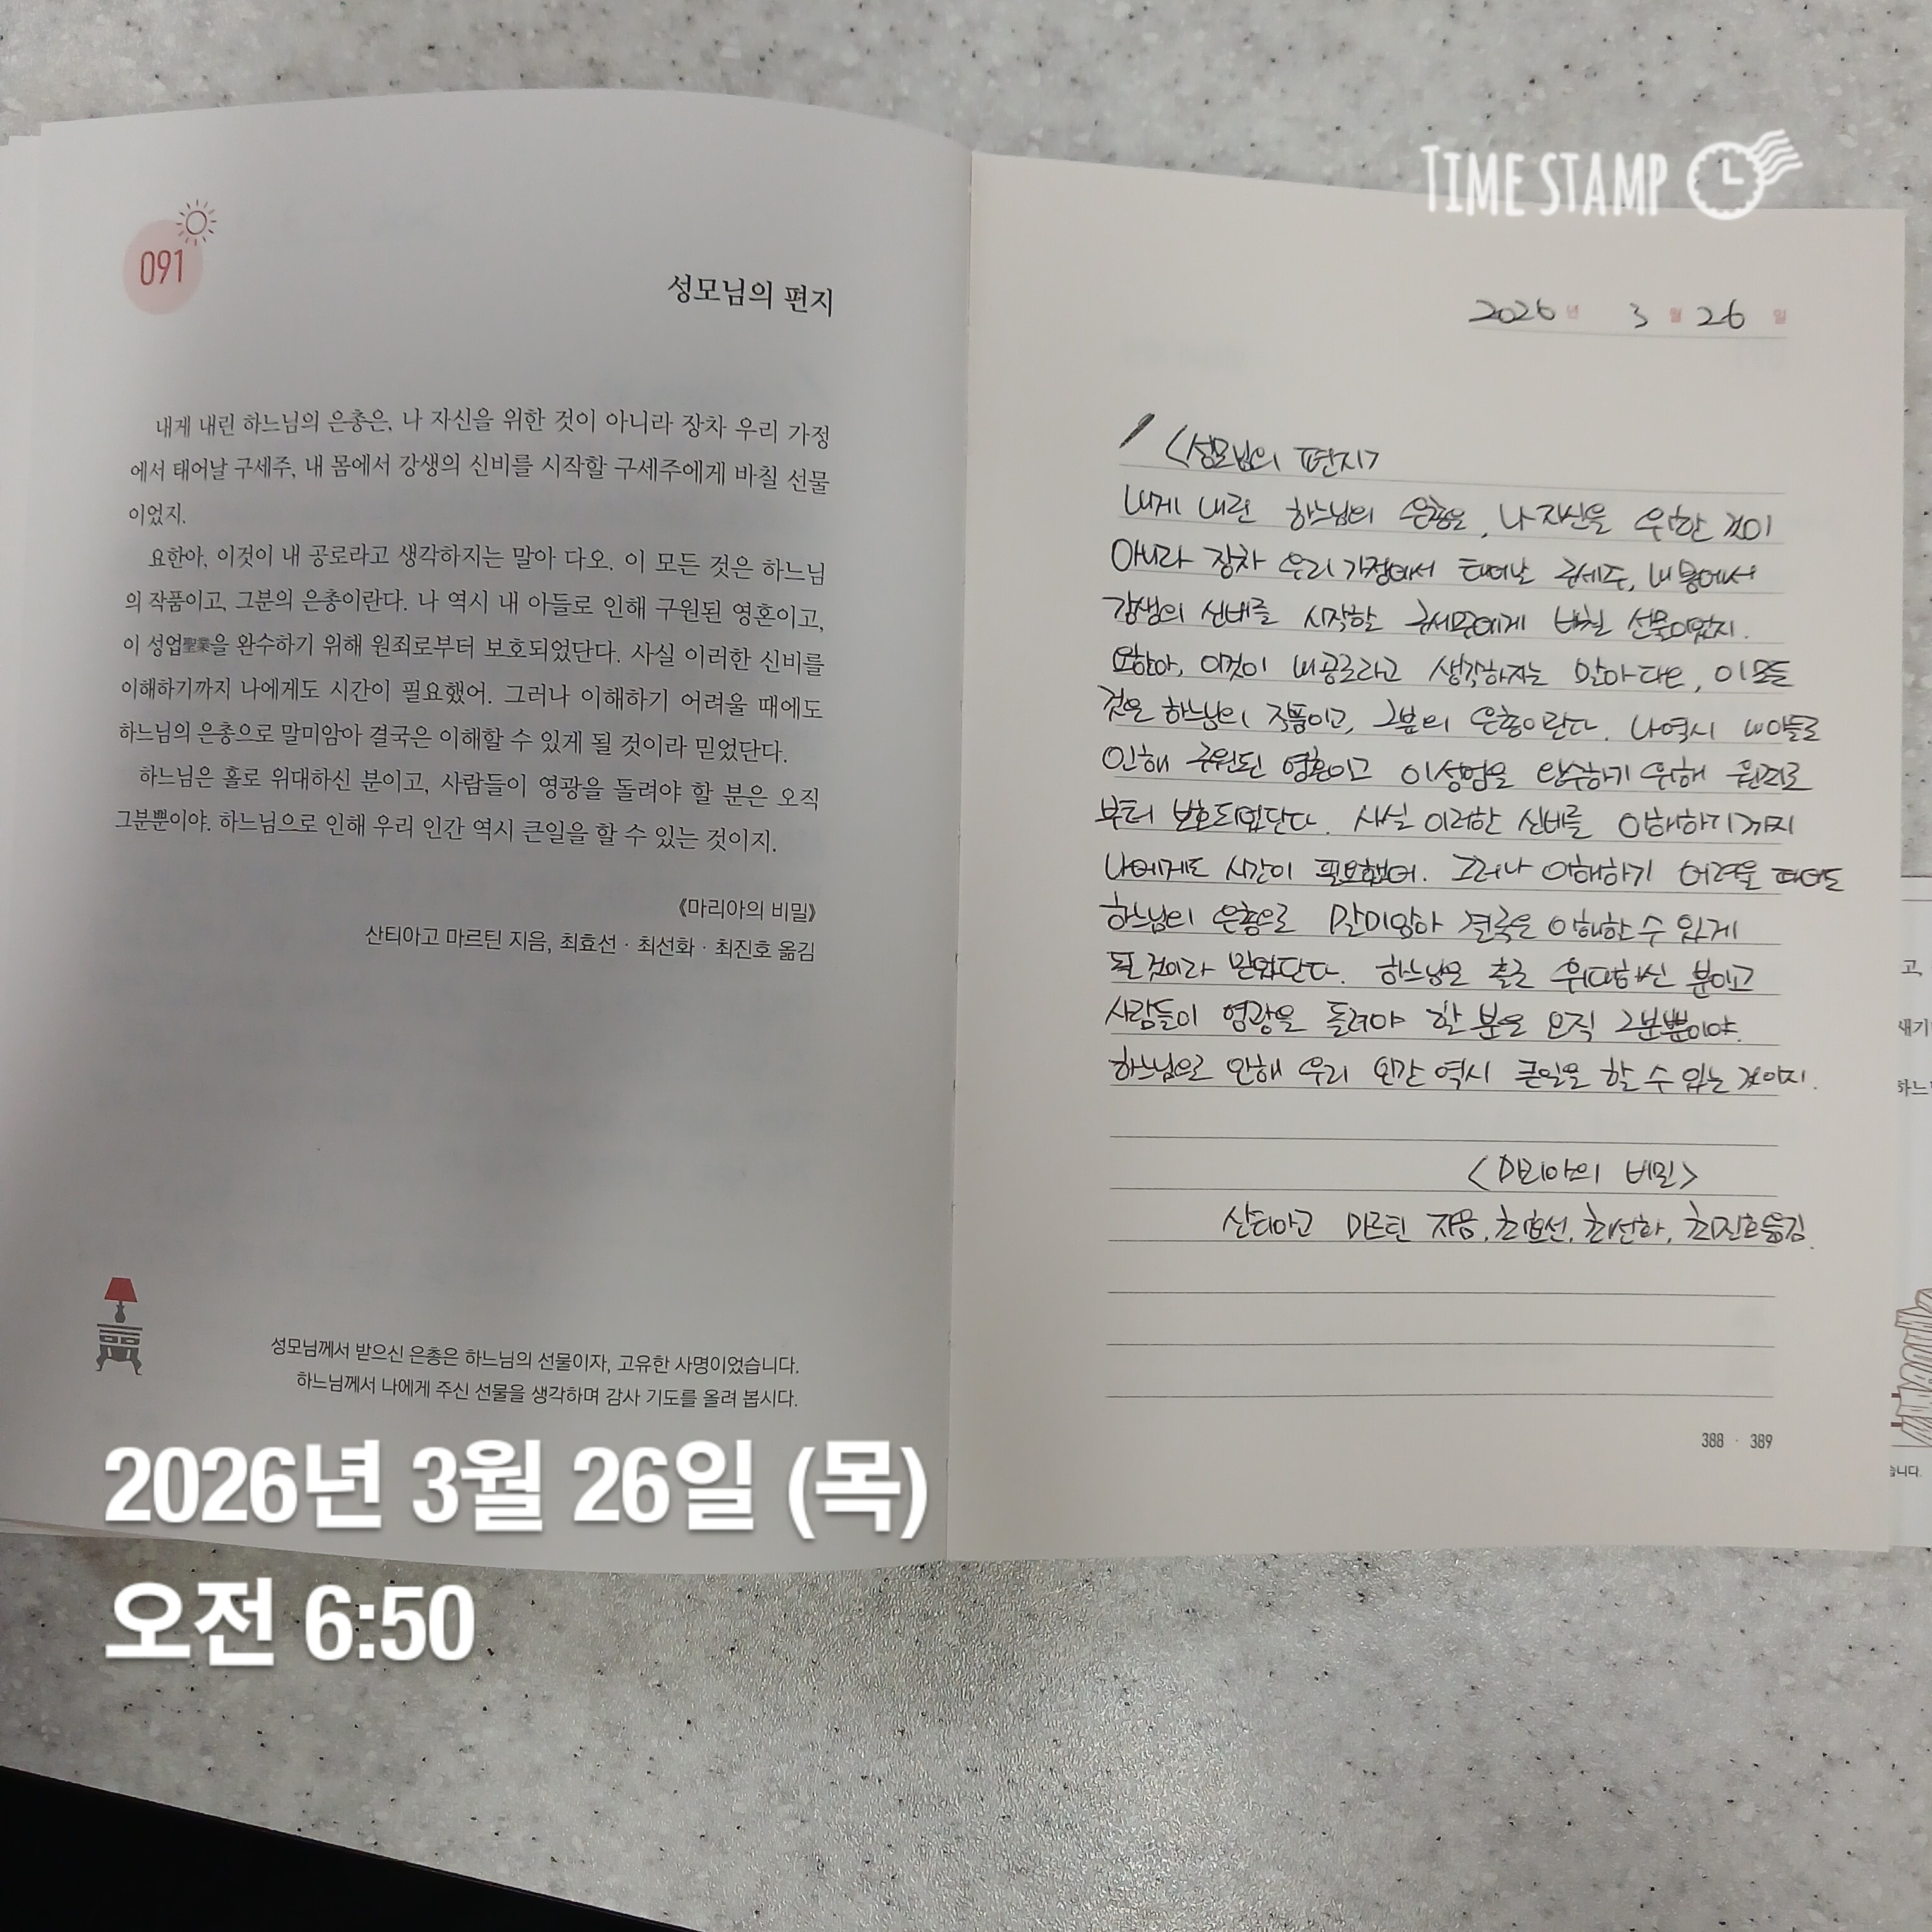 TIME STAMP
091
성모님의 편지
내게 내린 하느님의 은총은, 나 자신을 위한 것이 아니라 장차 우리 가정
에서 태어날 구세주, 내 몸에서 강생의 신비를 시작할 구세주에게 바칠 선물
이었지.
요한아, 이것이 내 공로라고 생각하지는 말아 다오. 이 모든 것은 하느님
의 작품이고, 그분의 은총이란다. 나 역시 내 아들로 인해 구원된 영혼이고,
이 성업聖業을 완수하기 위해 원죄로부터 보호되었단다. 사실 이러한 신비를
이해하기까지 나에게도 시간이 필요했어. 그러나 이해하기 어려울 때에도
하느님의 은총으로 말미암아 결국은 이해할 수 있게 될 것이라 믿었단다.
하느님은 홀로 위대하신 분이고, 사람들이 영광을 돌려야 할 분은 오직
그분뿐이야. 하느님으로 인해 우리 인간 역시 큰일을 할 수 있는 것이지.
《마리아의 비밀》
산티아고 마르틴 지음, 최효선 · 최선화 · 최진호 옮김
성모님께서 받으신 은총은 하느님의 선물이자, 고유한 사명이었습니다.
하느님께서 나에게 주신 선물을 생각하며 감사 기도를 올려 봅시다.
2026년 3월 26일
<성모님의 편지>
내게 내린 하느님의 은총은, 나 자신을 위한 것이
아니라 장차 우리 가정에서 태어날 구세주, 내 몸에서
강생의 신비를 시작할 구세주에게 바칠 선물이었지.
요한아, 이것이 내 공로라고 생각하지는 말아 다오, 이 모든
것은 하느님의 작품이고, 그분의 은총이란다. 나 역시 내 아들로
인해 구원된 영혼이고 이 성업을 완수하기 위해 원죄로
부터 보호되었단다. 사실 이러한 신비를 이해하기까지
나에게도 시간이 필요했어. 그러나 이해하기 어려울 때에도
하느님의 은총으로 말미암아 결국은 이해할 수 있게
될 것이라 믿었단다. 하느님은 홀로 위대하신 분이고
사람들이 영광을 돌려야 할 분은 오직 그분뿐이야.
하느님으로 인해 우리 인간 역시 큰일을 할 수 있는 것이지.
<마리아의 비밀>
산티아고 마르틴 지음, 최효선, 최선화, 최진호 옮김.
388 · 389
고,
새기
하느
습니다.
2026년 3월 26일 (목)
오전 6:50